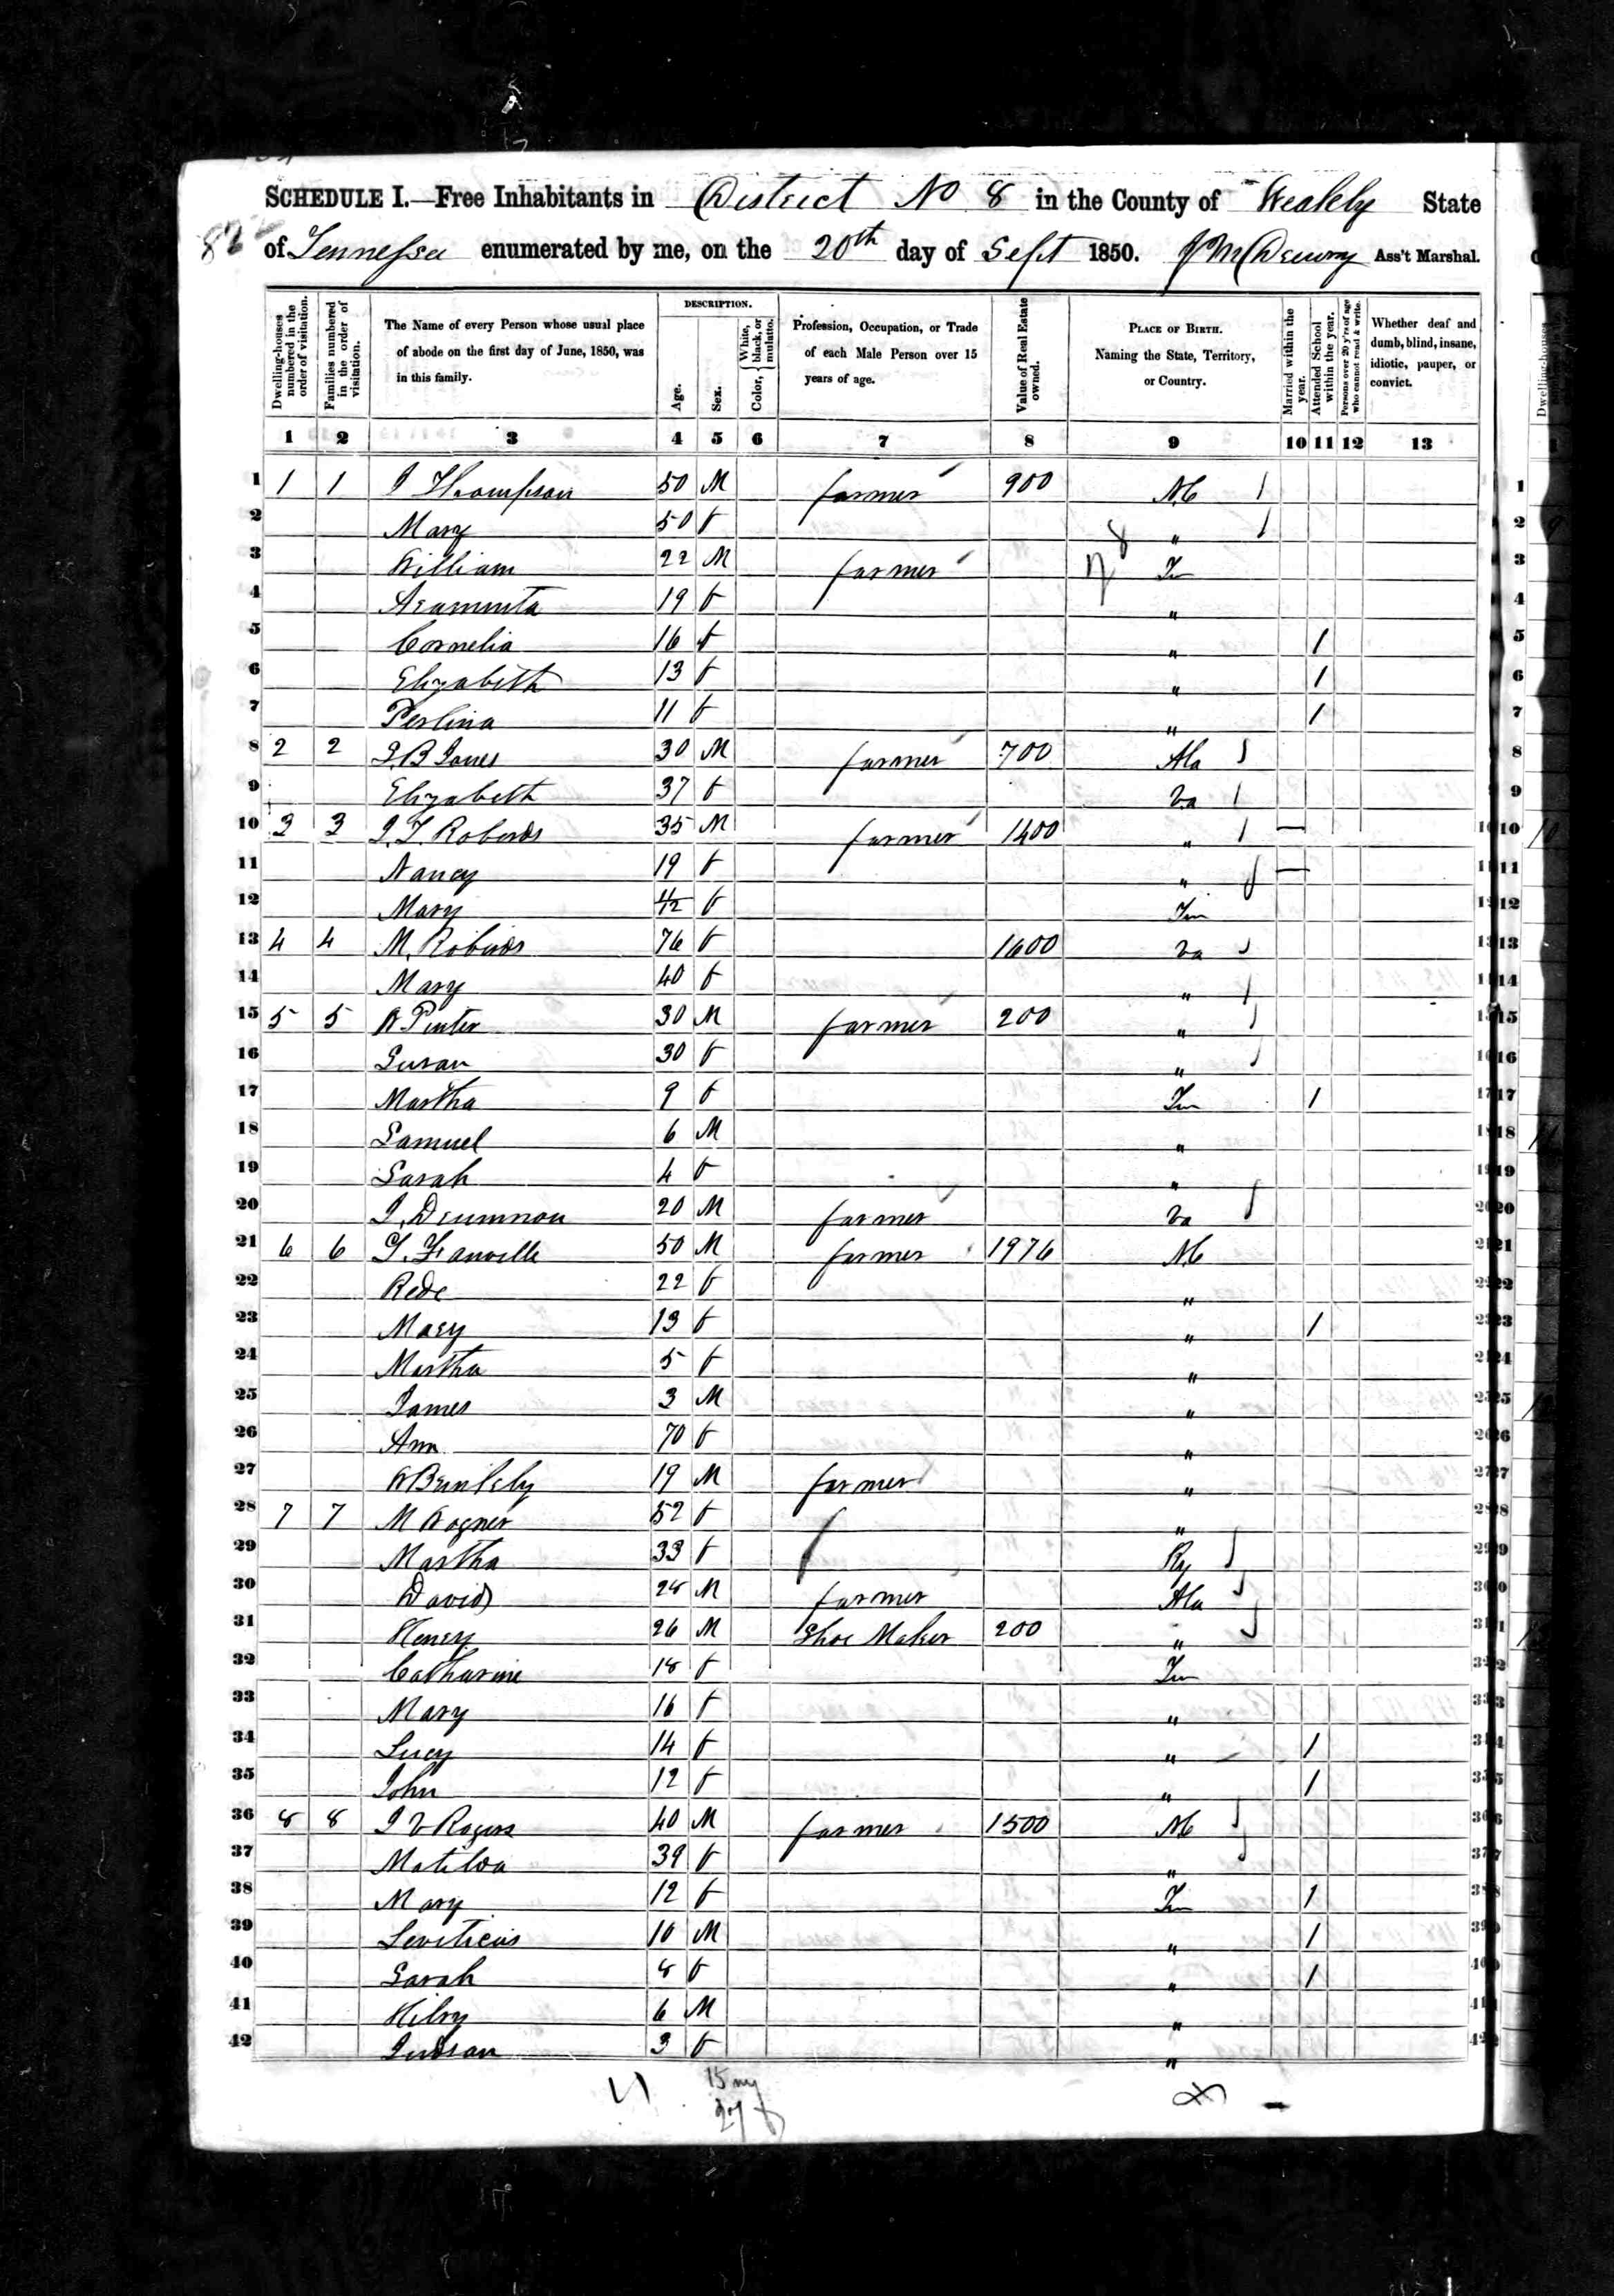 SCHEDULE I.—Free Inhabitants in District No 8 in the County of Weakly State
of Tennessee enumerated by me, on the 20th day of Sept 1850. Ass't Marshal.
Dwelling-houses numbered in the order of visitation.
Families numbered in the order of visitation.
The Name of every Person whose usual place of abode on the first day of June, 1850, was in this family.
DESCRIPTION.
Age.
Sex.
Color, { White, black, or mulatto.
Profession, Occupation, or Trade of each Male Person over 15 years of age.
Value of Real Estate owned.
PLACE OF BIRTH. Naming the State, Territory, or Country.
Married within the year.
Attended School within the year.
Persons over 20 y'rs of age who cannot read & write.
Whether deaf and dumb, blind, insane, idiotic, pauper, or convict.
1 2 3 4 5 6 7 8 9 10 11 12 13
1 1 1 J Thompson 50 M farmer 900 NC 1
2 Mary 50 F " 2
3 William 22 M farmer Tn 3
4 Araminta 19 F " 4
5 Cornelia 16 F " 1 5
6 Elizabeth 13 F " 1 6
7 Perlina 11 F " 1 7
8 2 2 J. B Jones 30 M farmer 700 Ala 8
9 Elizabeth 37 F Va 9
10 3 3 J. T. Roberds 35 M farmer 1400 " — 10
11 Nancy 19 F " — 11
12 Mary 1/2 F Tn 12
13 4 4 M. Roberds 76 F 1600 Va 13
14 Mary 40 F " 14
15 5 5 W Penter 30 M farmer 200 " 15
16 Susan 30 F " 16
17 Martha 9 F Tn 1 17
18 Samuel 6 M " 18
19 Sarah 4 F " 19
20 J. Drummon 20 M farmer Va 20
21 6 6 50 M farmer 1976 NC 21
22 Rede 22 F " 22
23 Mary 13 F " 1 23
24 Martha 5 F " 24
25 James 3 M " 25
26 Ann 70 F " 26
27 19 M farmer " 27
28 7 7 M Wagner 52 F " 28
29 Martha 33 F Ky
30 David 28 M farmer Ala
31 Henry 26 M Shoe Maker 200 "
32 Catharine 18 F Tn
33 Mary 16 F "
34 Lucy 14 F " 1
35 John 12 F " 1
36 8 8 J V Rogers 40 M farmer 1500 NC
37 Matilda 39 F "
38 Mary 12 F Tn 1
39 Leviticus 10 M " 1
40 Sarah 8 F " 1
41 Hilry 6 M "
42 Judson 3 F "
15 m
27 f